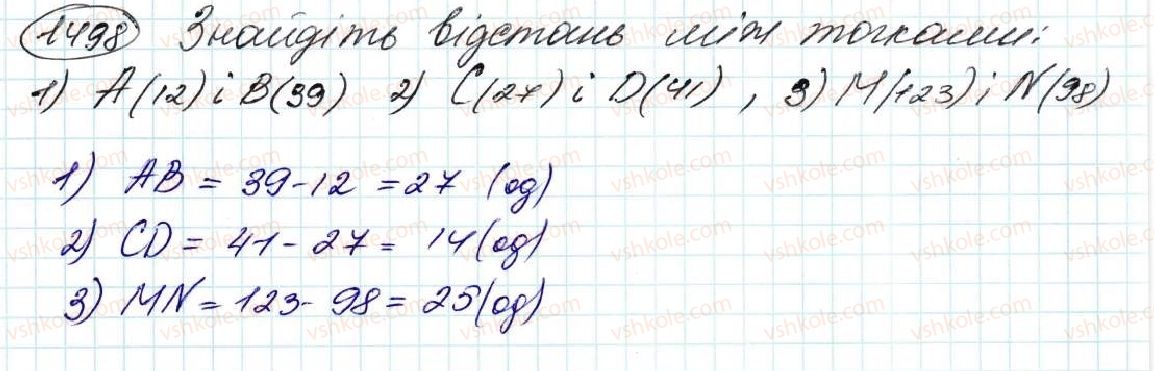 1498 Знайдіть відстань між точками:
1) A(12) і B(39) 2) C(27) і D(41), 3) M(123) і N(98)
1) AB = 39 - 12 = 27 (од)
2) CD = 41 - 27 = 14 (од)
3) MN = 123 - 98 = 25 (од)